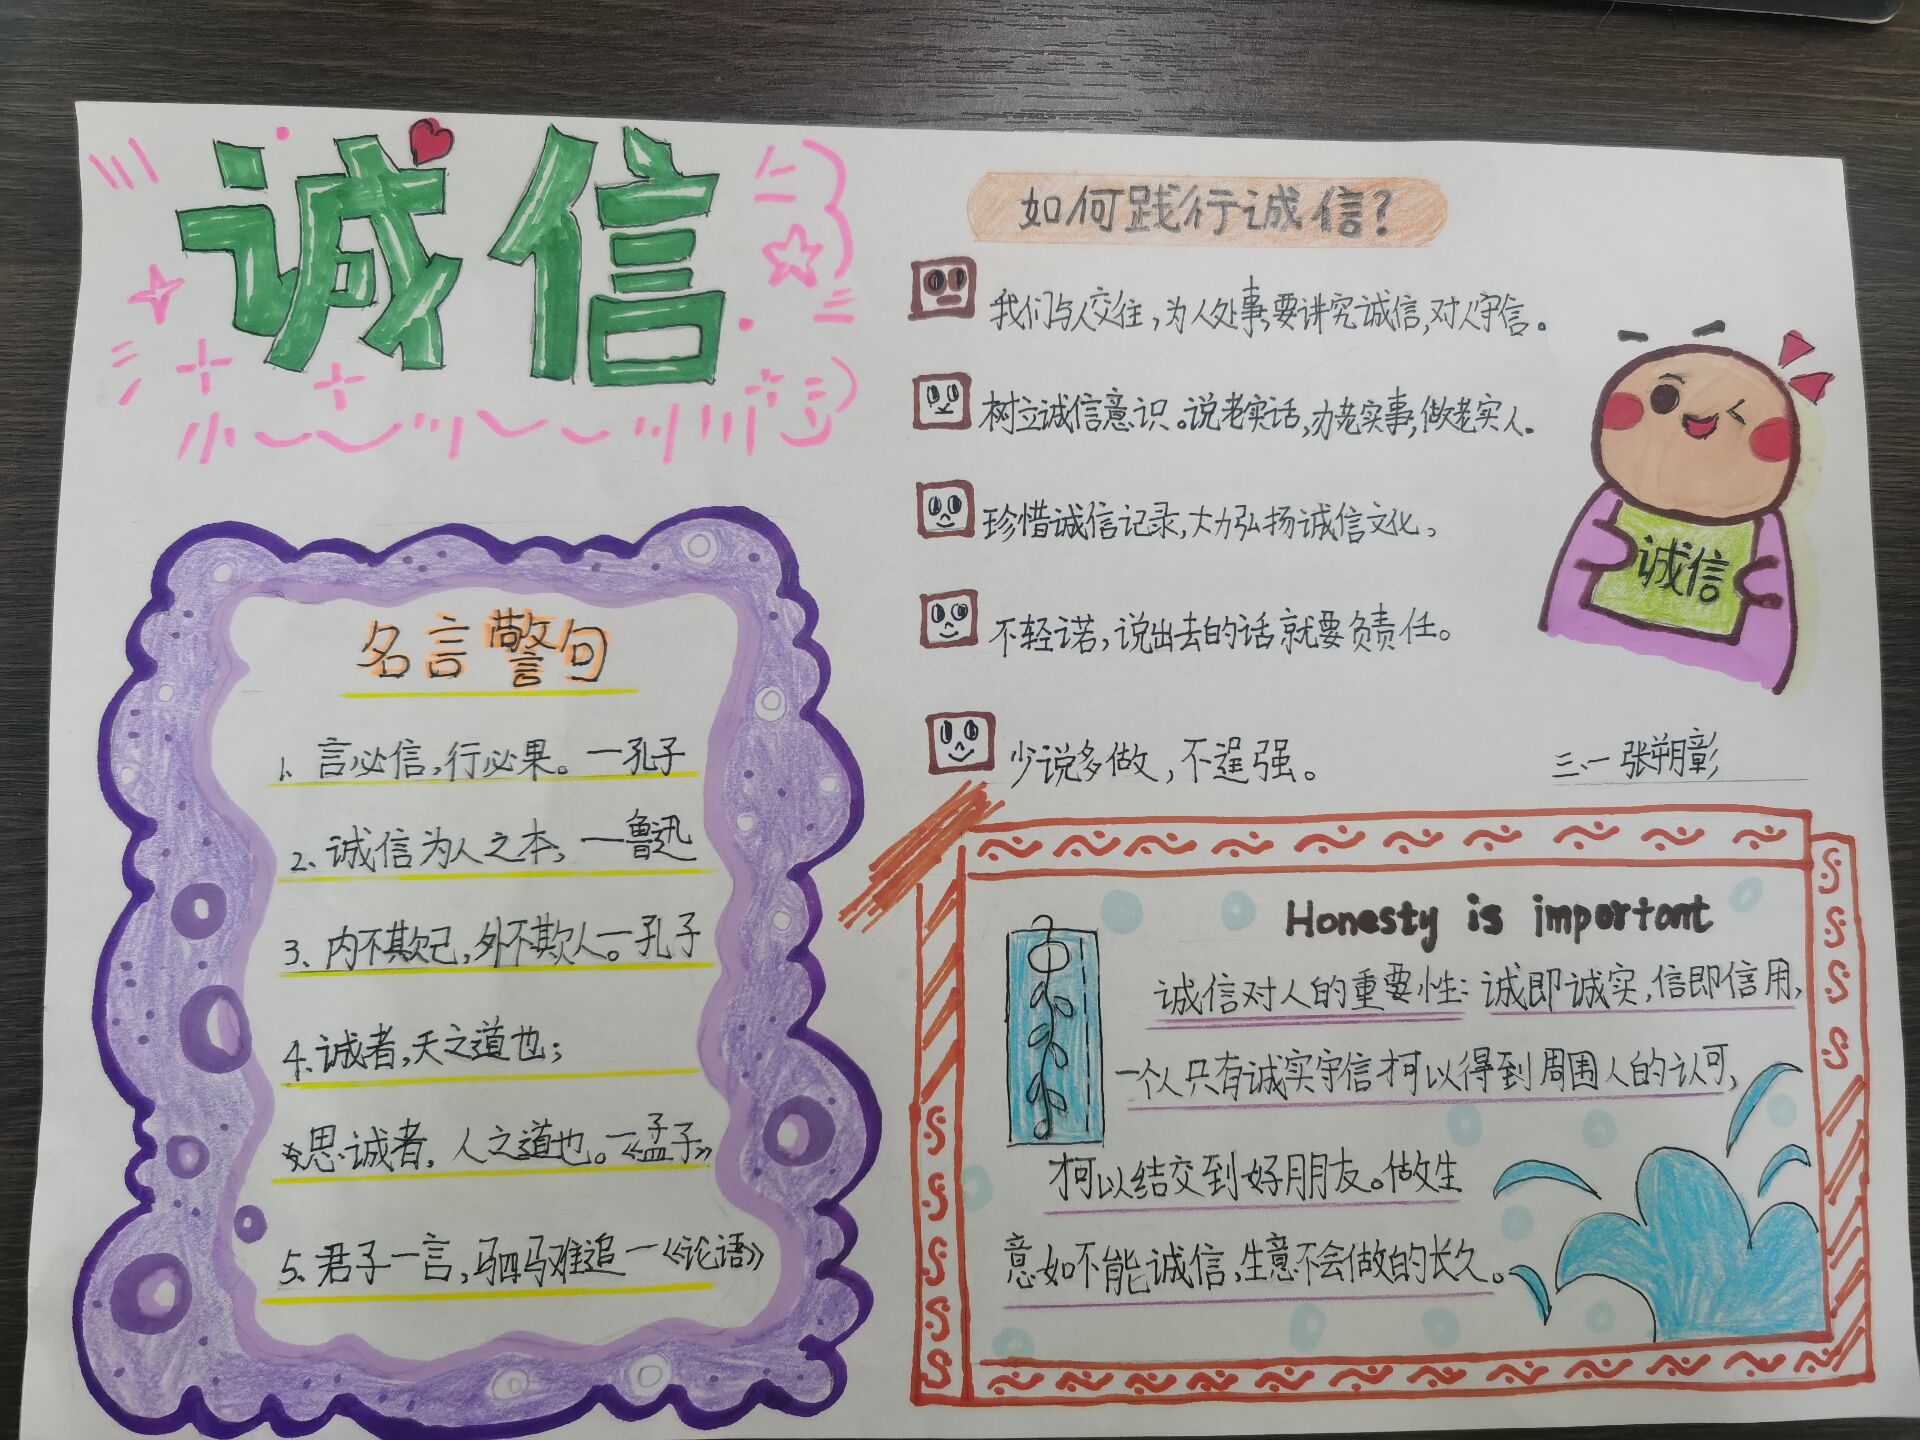 诚信
名言警句
1、言必信,行必果。—孔子
2、诚信为人之本,—鲁迅
3、内不欺己,外不欺人。—孔子
4、诚者,天之道也;
思诚者,人之道也。—《孟子》
5、君子一言,驷马难追—《论语》
如何践行诚信?
我们与人交往,为人处事,要讲究诚信,对人守信。
树立诚信意识。说老实话,办老实事,做老实人。
珍惜诚信记录,大力弘扬诚信文化。
不轻诺,说出去的话就要负责任。
少说多做,不逞强。
诚信
三、一 张朔彰
Honesty is important
诚信对人的重要性:诚即诚实,信即信用,
一个人只有诚实守信才可以得到周围人的认可,
才可以结交到好朋友。做生
意如不能诚信,生意不会做的长久。